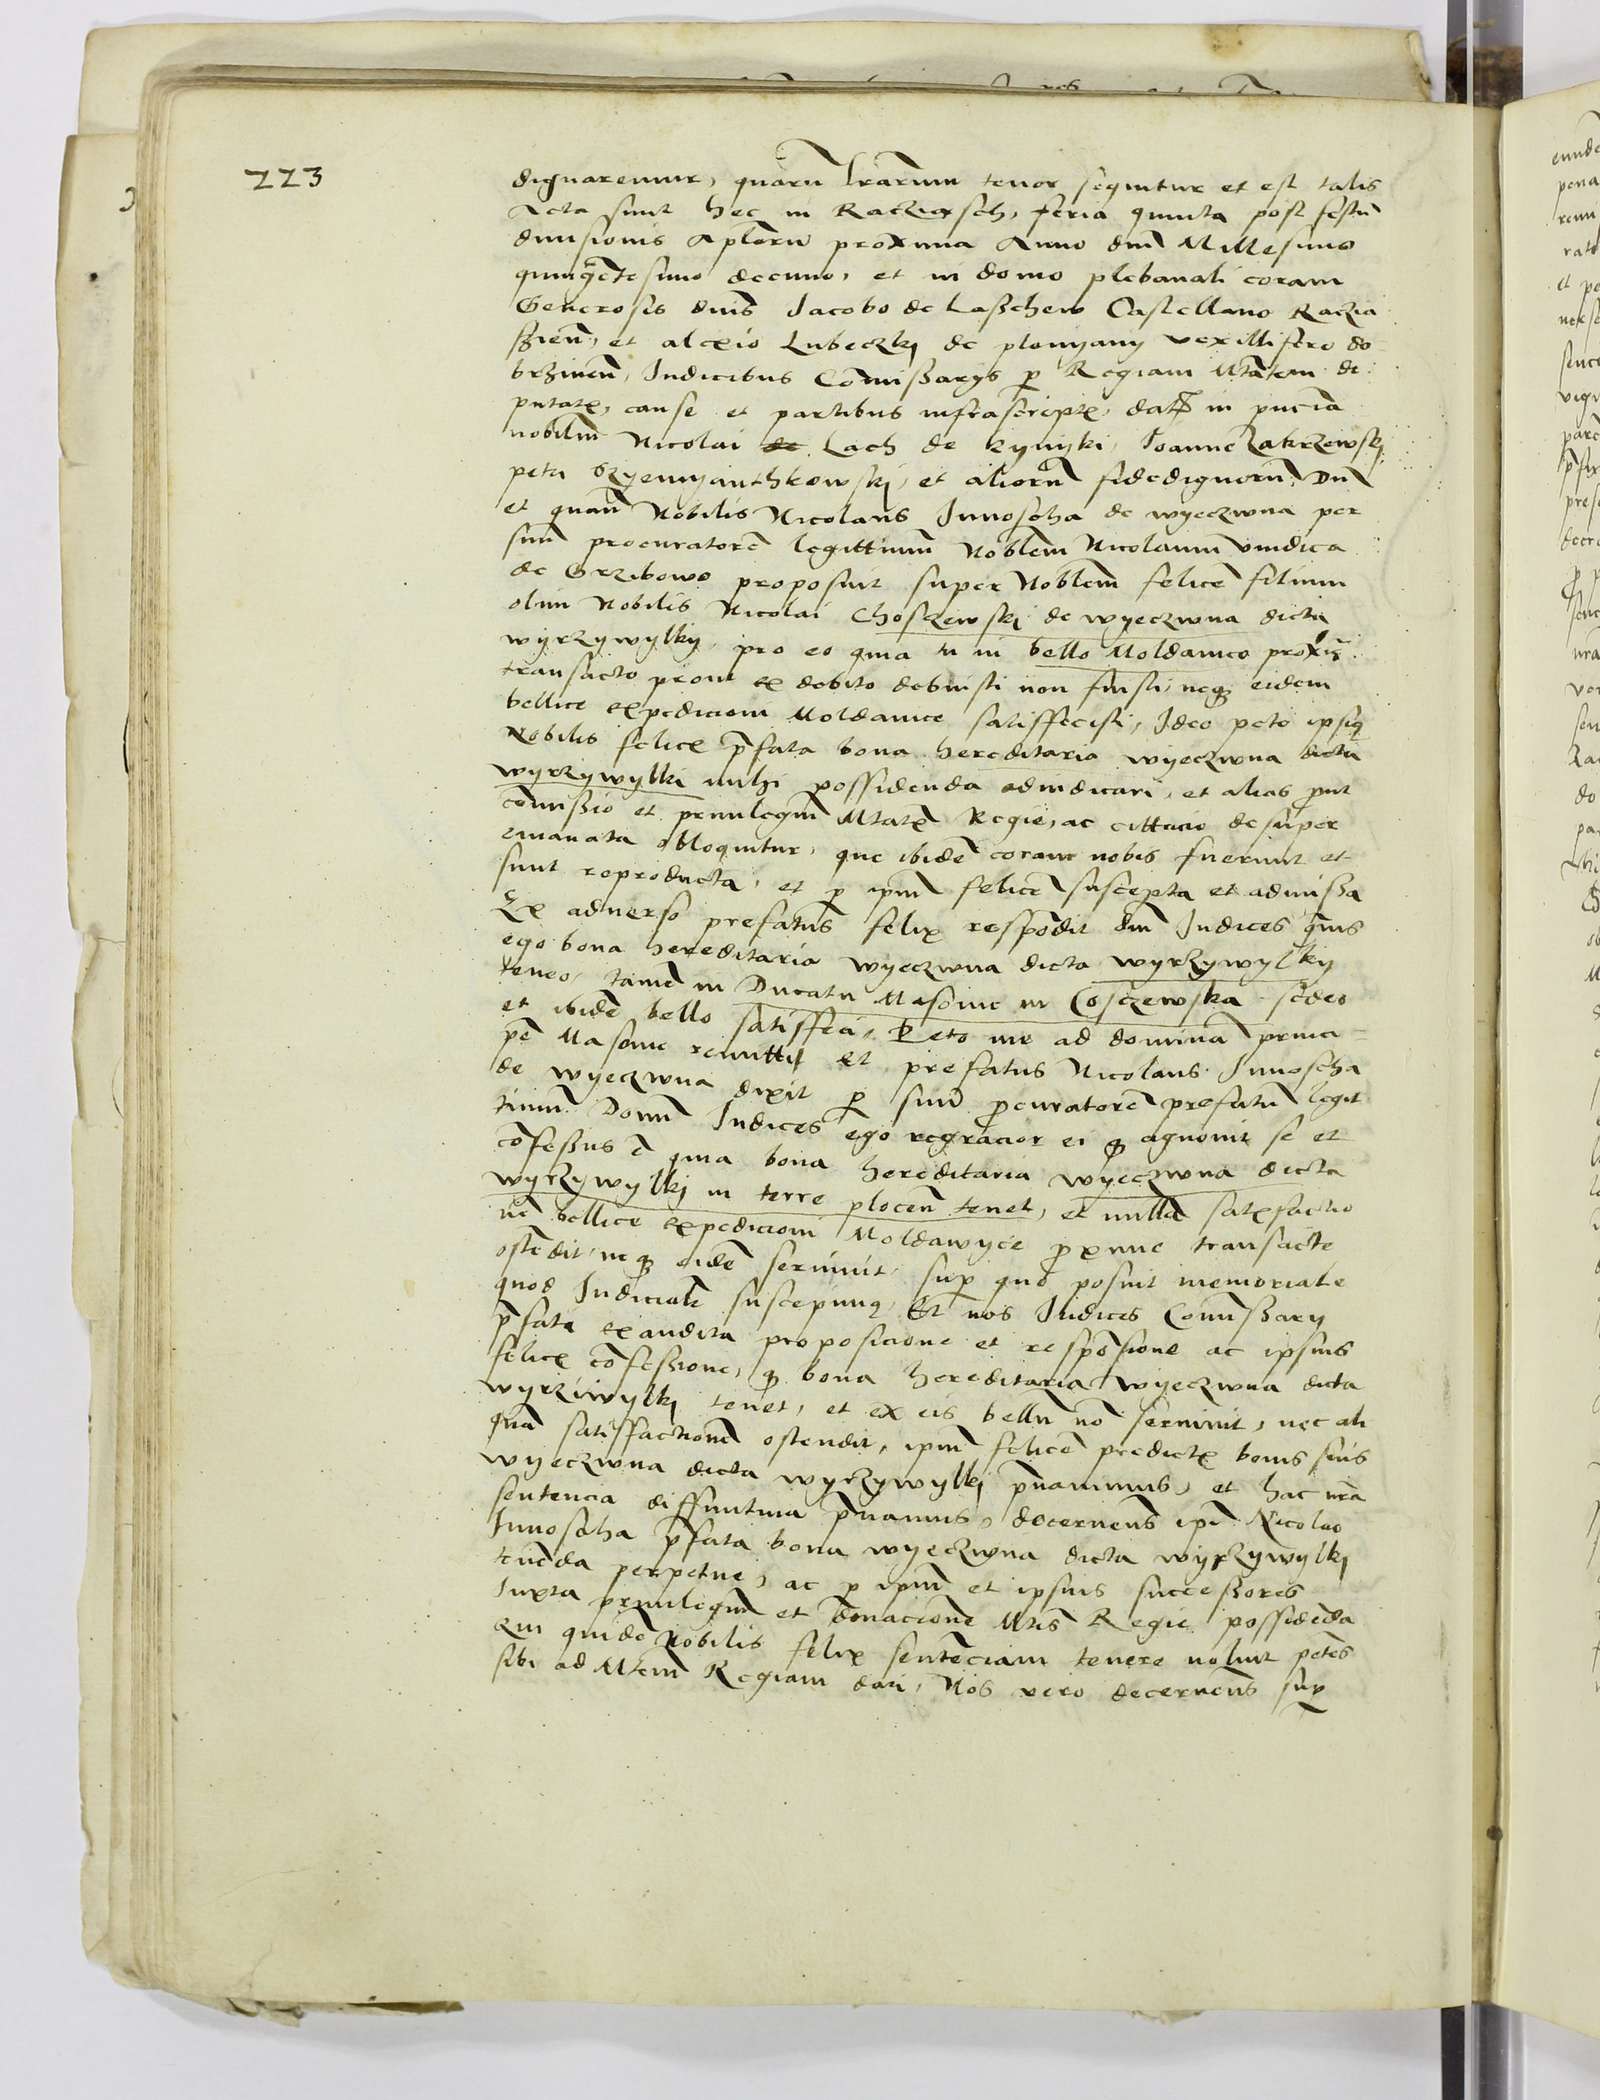 223
dignaremur, quarū lrarum tenor sequitur et est talis
Acta sunt hec in Raczyasch, feria quinta post festū
diuisionis Aplorū proxima Anno dnī Millesimo
quingētesimo decimo, et in domo plebanali coram
Generosis dnīs Jacobo de Laßchew Castellano Raczia
ßien̄, et alexio Lubeczkj de plomyany vexillifero do
brzinen̄, Judicibus Com̄ißarijs p Regiam Mtātem de
putatꝭ, cause et partibus infrascriptꝭ, datꝭ in pn̄cia
nobiliū Nicolai de Lach de kynyki, Joanne Zakrzewskj
petri Szyemyanthkowskj, et aliorū fidedignorū, Dū
et quan̄ Nobilis Nicolaus Junoscha de wyeczwna per
suū procuratorē legittimū Noblem Nicolaum vindica
de Grzibowo proposuit super Noblem felicē filium
olim Nobilis Nicolai Choskewskj de wyeczwna dicta
wyrzywylky, pro eo quia tu in bello Moldauico proxīe
transacto prout ex debito debuisti non fuisti, neqꝫ eidem
bellice expedicioni Moldauice satisfecisti, Ideo peto ipsiꝰ
Nobilis felicꝭ p̄fata bona hereditaria wyeczwna dicta
wyrzywylki mihi possidenda adiudicari, et alias prout
com̄ißio et priuilegiū Mtatꝭ Regie, ac cittacio desuper
emanata obloquitur, que ibidē coram nobis fuerunt et
sunt reproducta, et p ipm̄ felicē suscepta et admißa
Ex aduerso prefatus felix respōdit dnī Judices quis
ego bona hereditaria wyeczwna dicta wyrzywylky
teneo, tamē in Ducatu Masouie in Coszewska sedeo
et ibidē bello satisfeci, Peto me ad dominā princi
pē Masouie remitti et prefatus Nicolaus Junoscha
de wyeczwna dixit p suū procuratorē prefatū legit
timū Domī Judices ego regracior ei qꝫ agnouit se et
cōfeßus ē quia bona hereditaria wyeczwna dicta
wyrzywylkj in terre plocen̄ tenet, et nullā satisfactio
nē bellice expedicioni Moldawyce proxime transacte
ostēdit, neqꝫ eidē seruiuit, sup quo posuit memoriale
quod Judicialr suscepimꝰ, Et nos Judices Com̄ißary
p̄fate exaudita proposicione et respōsione ac ipsius
felicꝭ cōfeßione, qꝫ bona hereditaria wyeczwna dicta
wyrziwylkj tenet, et ex eis bellū nō seruiuit, nec ali
quā satisfactionē ostendit, ipm̄ felicē predictꝭ bonis suis
wyeczwna dicta wyrzywylkj p̄uauimus, et hac nr̄a
sentencia diffinitiua p̄uamus, decernen̄s ipī Nicolao
Junoscha p̄fata bona wyeczwna dicta wyrzywylkj
tenēda perpetue, ac p ipm̄ et ipsius succeßores
Juxta priuilegiū et donacionē Mtis Regie possidēda
Qui quidē Nobilis felix sentēciam tenere noluit petēs
sibi ad Mtem Regiam dari, Nos vero decernen̄s sup